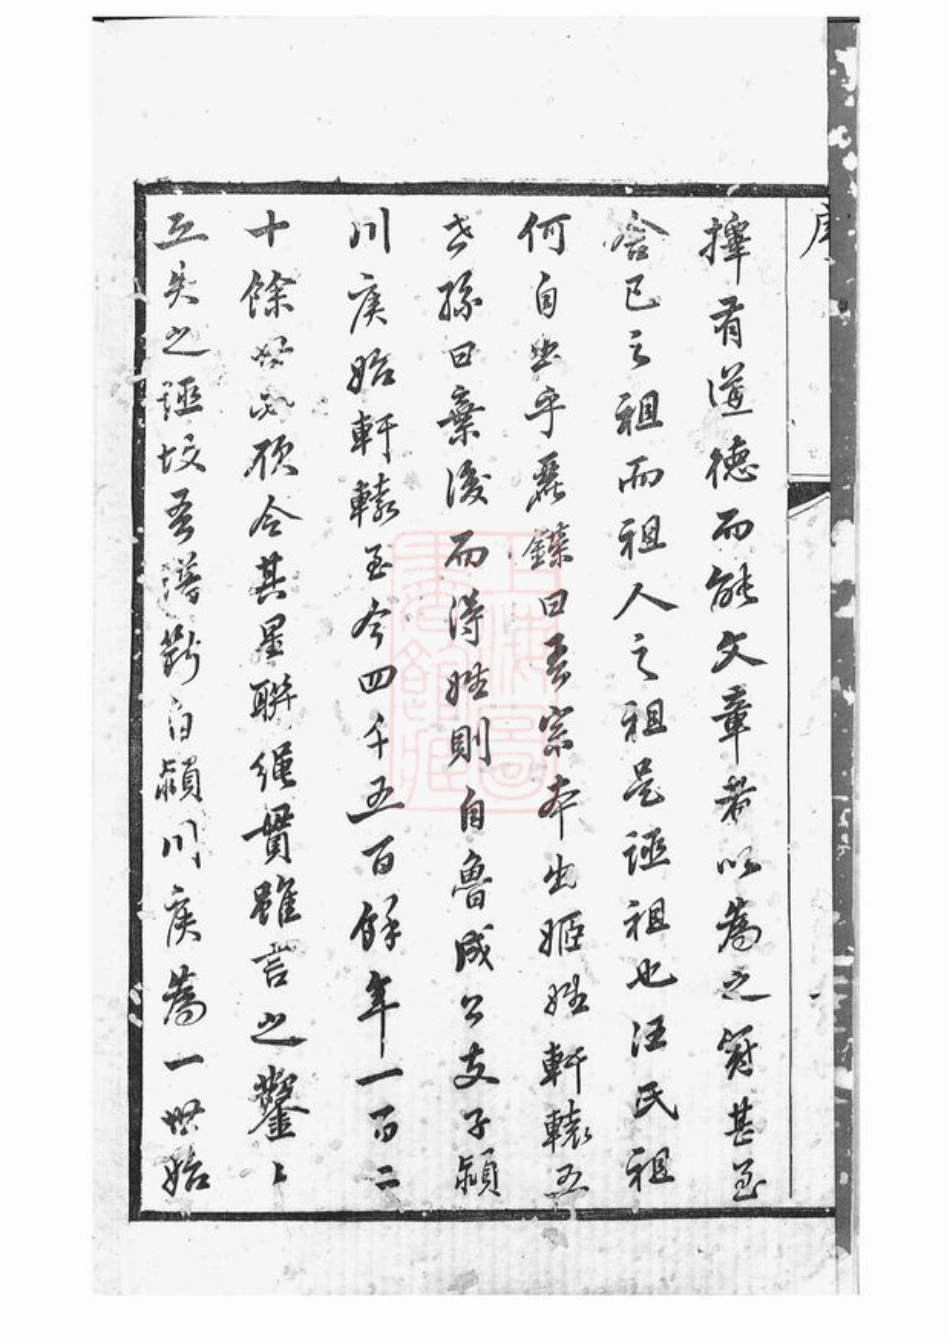 序
擇有道德而能文章者以為之冠甚至
舍已之祖而祖人之祖是誣祖也汪氏祖
何自出乎叢錄曰吾宗本出姬姓軒轅五
世孫曰棄後而得姓則自魯成公支子潁
川侯始軒轅至今四千五百餘年一百二
十餘世必欲令其星聯繩貫雖言之鑿鑿
失之誣故吾譜斷自潁川侯為一世始
一
上海圖書館藏